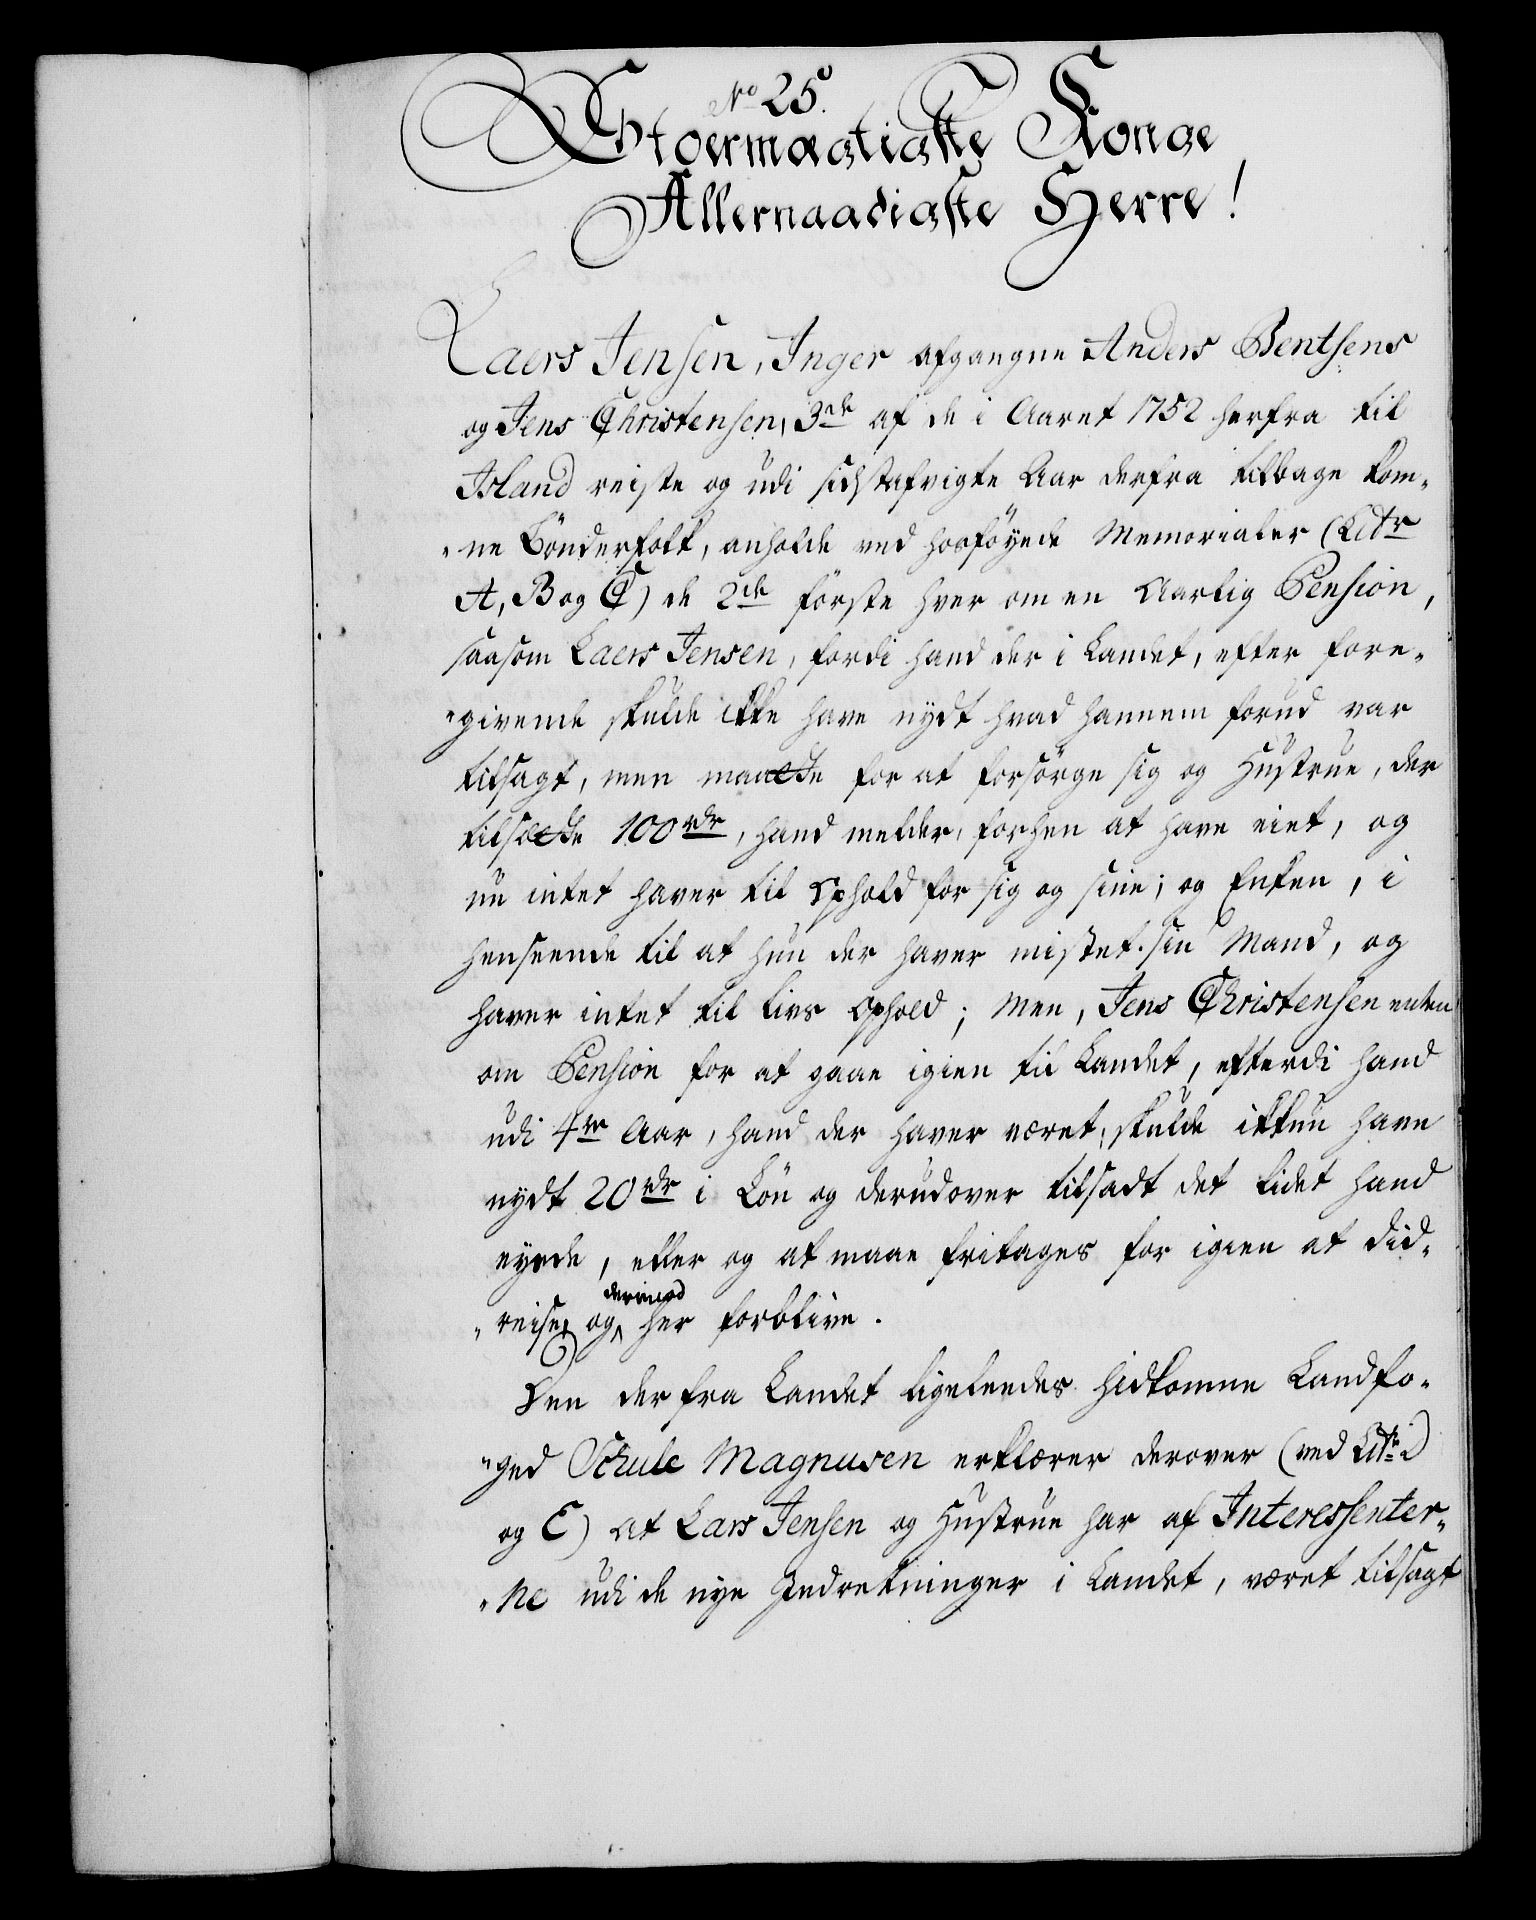 No 25.
Stoermægtigste Konge
Allernaadigste Herre!
Laers Jensen, Inger afgangne Anders Bentsens
og Jens Christensen, 3nde af de i Aaret 1752 herfra til
Island reiste og udi sidstafvigte Aar derfra tilbage kom-
-ne Bönderfolk, anholde ved hosföyede Memorialer (Litr
A, B og C) de 2de förste hver om en Aarlig Pension,
saasom Laers Jensen, fordi hand der i Landet, efter fore-
-givende skulde ikke have nydt hvad hannem forud var
tilsagt, men maatte for at forsörge sig og Hustrue, der
tilsætte 100 rdr, hand melder, forhen at have eiet, og
nu intet haver til Ophold for sig og sine; og Enken, i
henseende til at hun der haver mistet sin Mand, og
haver intet til livs Ophold; Men, Jens Christensen enten
om Pension for at gaae igien til Landet, efterdi hand
udi 4re Aar, hand der haver været, skulde ikkun have
nydt 20 rdr i Lön og derudover tilsadt det lidet hand
eyede, eller og at maae fritages for igien at did-
-reise, og derimod her forblive.
Den der fra Landet ligeledes hidkomne Landfo-
-ged Schule Magnusen erklærer derover (ved Litr D
og E) at Lars Jensen og Hustrue har af Interessenter-
-ne udi de nye Indretninger i Landet, været tilsagt